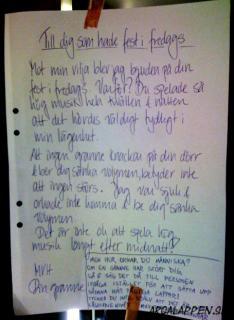 Till dig som hade fest i fredags
Mot min vilja blev jag bjuden på din
fest i fredags. Varför? Du spelade så
hög musik hela kvällen & natten
att det hördes väldigt tydligt i
min lägenhet.
Att ingen granne knackar på din dörr
& ber dig sänka volymen, betyder inte
att ingen störs. Jag var sjuk &
orkade inte komma & be dig sänka
volymen.
Det är inte ok att spela hög
musik långt efter midnatt!
MVH
Din granne
MEN HUR ORKAR DU MÄNNISKA?
OM EN GRANNE HAR STÖRT DIG,
SÅ SÄG DET TILL PERSONEN
IFRÅGA ISTÄLLET FÖR ATT SÄTTA UPP
SÅDANA HÄR LAPPAR!
TYCKER DU SJÄLV ATT DET
ARGALAPPEN.SE